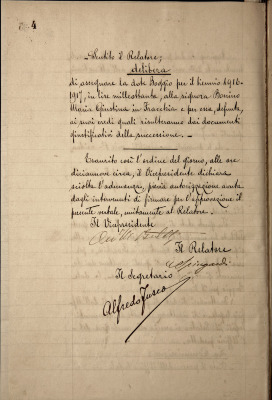 4
Sentito il Relatore;
delibera
di assegnare la dote Poggio per il biennio 1916-
1917, in lire milleottanta, alla signora Bonino
Maria Giustina in Fracchia e per essa, defunta,
ai suoi eredi quali risulteranno dai documenti
giustificativi della successione. —
Esaurito così l'ordine del giorno, alle ore
diciannove circa, il Vicepresidente dichiara
sciolta l'adunanza, previa autorizzazione avuta
dagli intervenuti di firmare per l'approvazione il
presente verbale, unitamente al Relatore. —
Il Vicepresidente
Il Relatore
Il Segretario
Alfredo Fusco